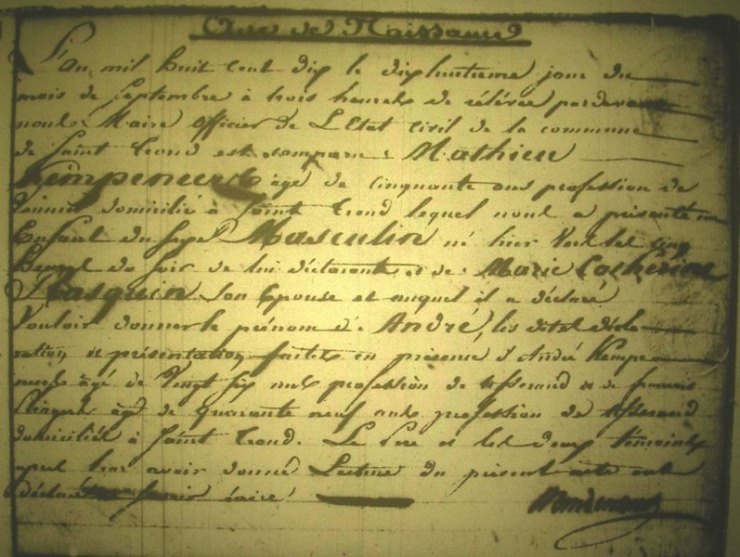 Acte de Naissance
L'an mil huit cent dix le dixhuitieme jour du
mois de Septembre à trois heures de relévée pardevant
nous Maire officier de L'Etat Civil de la commune
de Saint Trond est comparu Mathieu
Kempeneers agé de cinquante ans profession de
domicilié à Saint Trond lequel nous a présenté un
Enfant du sexe Masculin né hier vers les cinq
heures du soir de lui déclarante et de Marie Catherine
Strasquin son Epouse et auquel il a déclaré
Vouloir donner le prénom d'André, les dites décla
ration et présentation faites en présence d'André Kempe
neers âgé de Vingt six ans profession de tisserand et de francois
agé de quarante neuf ans profession de tisserand
domiciliés à Saint Trond. Le Père et les deux témoins
après leur avoir donné Lecture du présent acte ont
déclaré savoir écrire